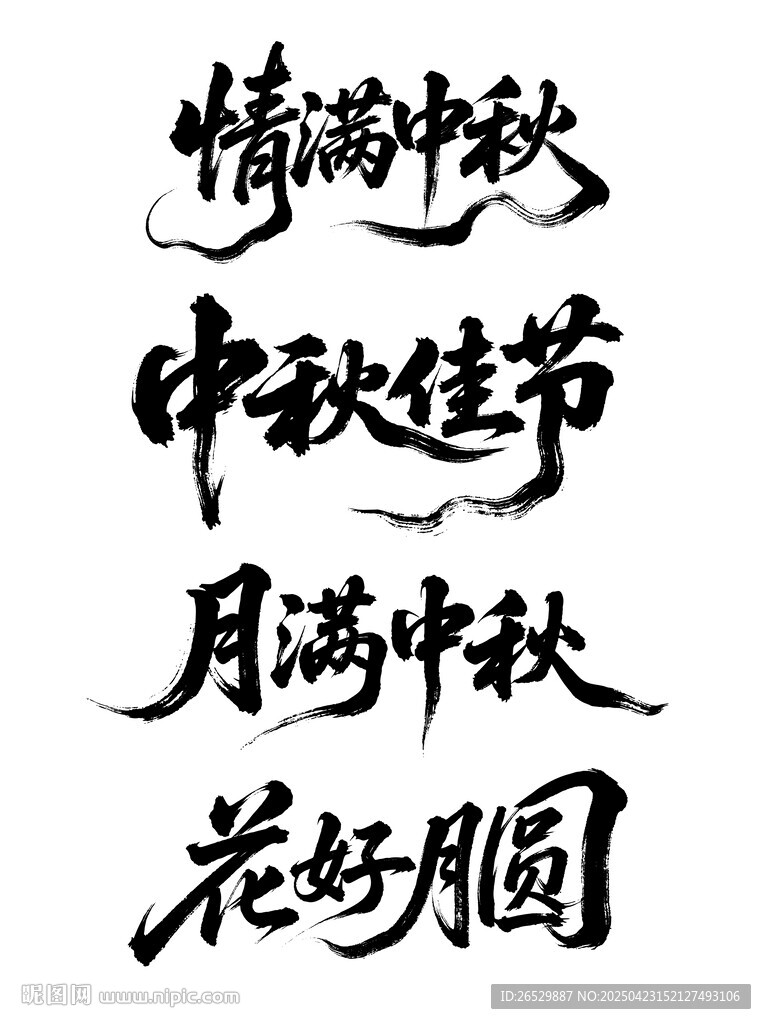 情满中秋
中秋佳节
月满中秋
花好月圆
昵图网 www.nipic.com
ID:26529887 NO:20250423152127493106